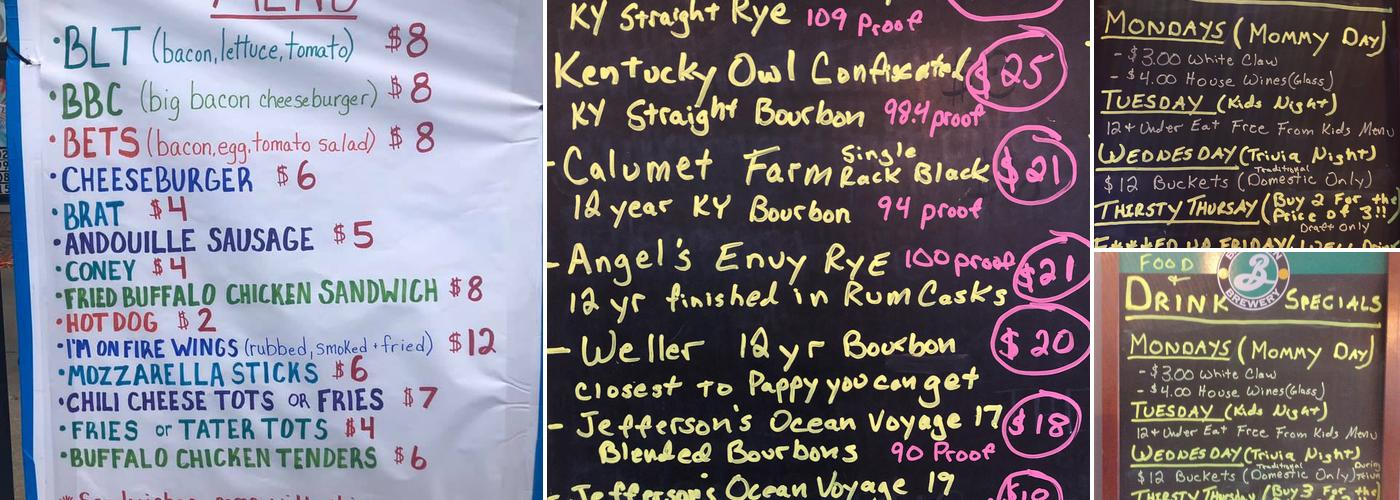 MENU
• BLT (bacon, lettuce, tomato) $8
• BBC (big bacon cheeseburger) $8
• BETS (bacon, egg, tomato salad) $8
• CHEESEBURGER $6
• BRAT $4
• ANDOUILLE SAUSAGE $5
• CONEY $4
• FRIED BUFFALO CHICKEN SANDWICH $8
• HOT DOG $2
• I'M ON FIRE WINGS (rubbed, smoked + fried) $12
• MOZZARELLA STICKS $6
• CHILI CHEESE TOTS OR FRIES $7
• FRIES or TATER TOTS $4
• BUFFALO CHICKEN TENDERS $6
KY Straight Rye 109 Proof
Kentucky Owl Confiscated $25
KY Straight Bourbon 98.4 proof
- Calumet Farm Single Rack Black $21
12 year KY Bourbon 94 proof
- Angel's Envy Rye 100 proof $21
12 yr finished in Rum Casks
- Weller 12 yr Bourbon $20
closest to Pappy you can get
- Jefferson's Ocean Voyage 17 $18
Blended Bourbons 90 Proof
Jefferson's Ocean Voyage 19
MONDAYS (Mommy Day)
- $3.00 White Claw
- $4.00 House Wines (Glass)
TUESDAY (Kids Night)
12 + Under Eat Free From Kids Menu
WEDNESDAY (Trivia Night)
$12 Buckets (Traditional Domestic Only)
THIRSTY THURSAY (Buy 2 For the
Price of 3!!
Draft Only
F***ED UP FRIDAY
FOOD
+
DRINK SPECIALS
B
BREWERY
MONDAYS (Mommy Day)
- $3.00 White Claw
- $4.00 House Wines (Glass)
TUESDAY (Kids Night)
12 + Under Eat Free From Kids Menu
WEDNESDAY (Trivia Night)
$12 Buckets (Traditional Domestic Only) During
THIRSTY Thursday (Buy 3 For the